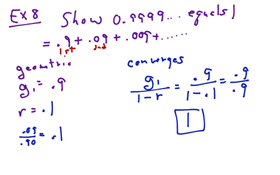 Ex 8 Show 0.9999... equals 1
= .9 + .09 + .009 + ......
1st 2nd
geometric
g₁ = .9
r = .1
.09/.90 = .1
converges
g₁/(1-r) = .9/(1-.1) = .9/.9
1